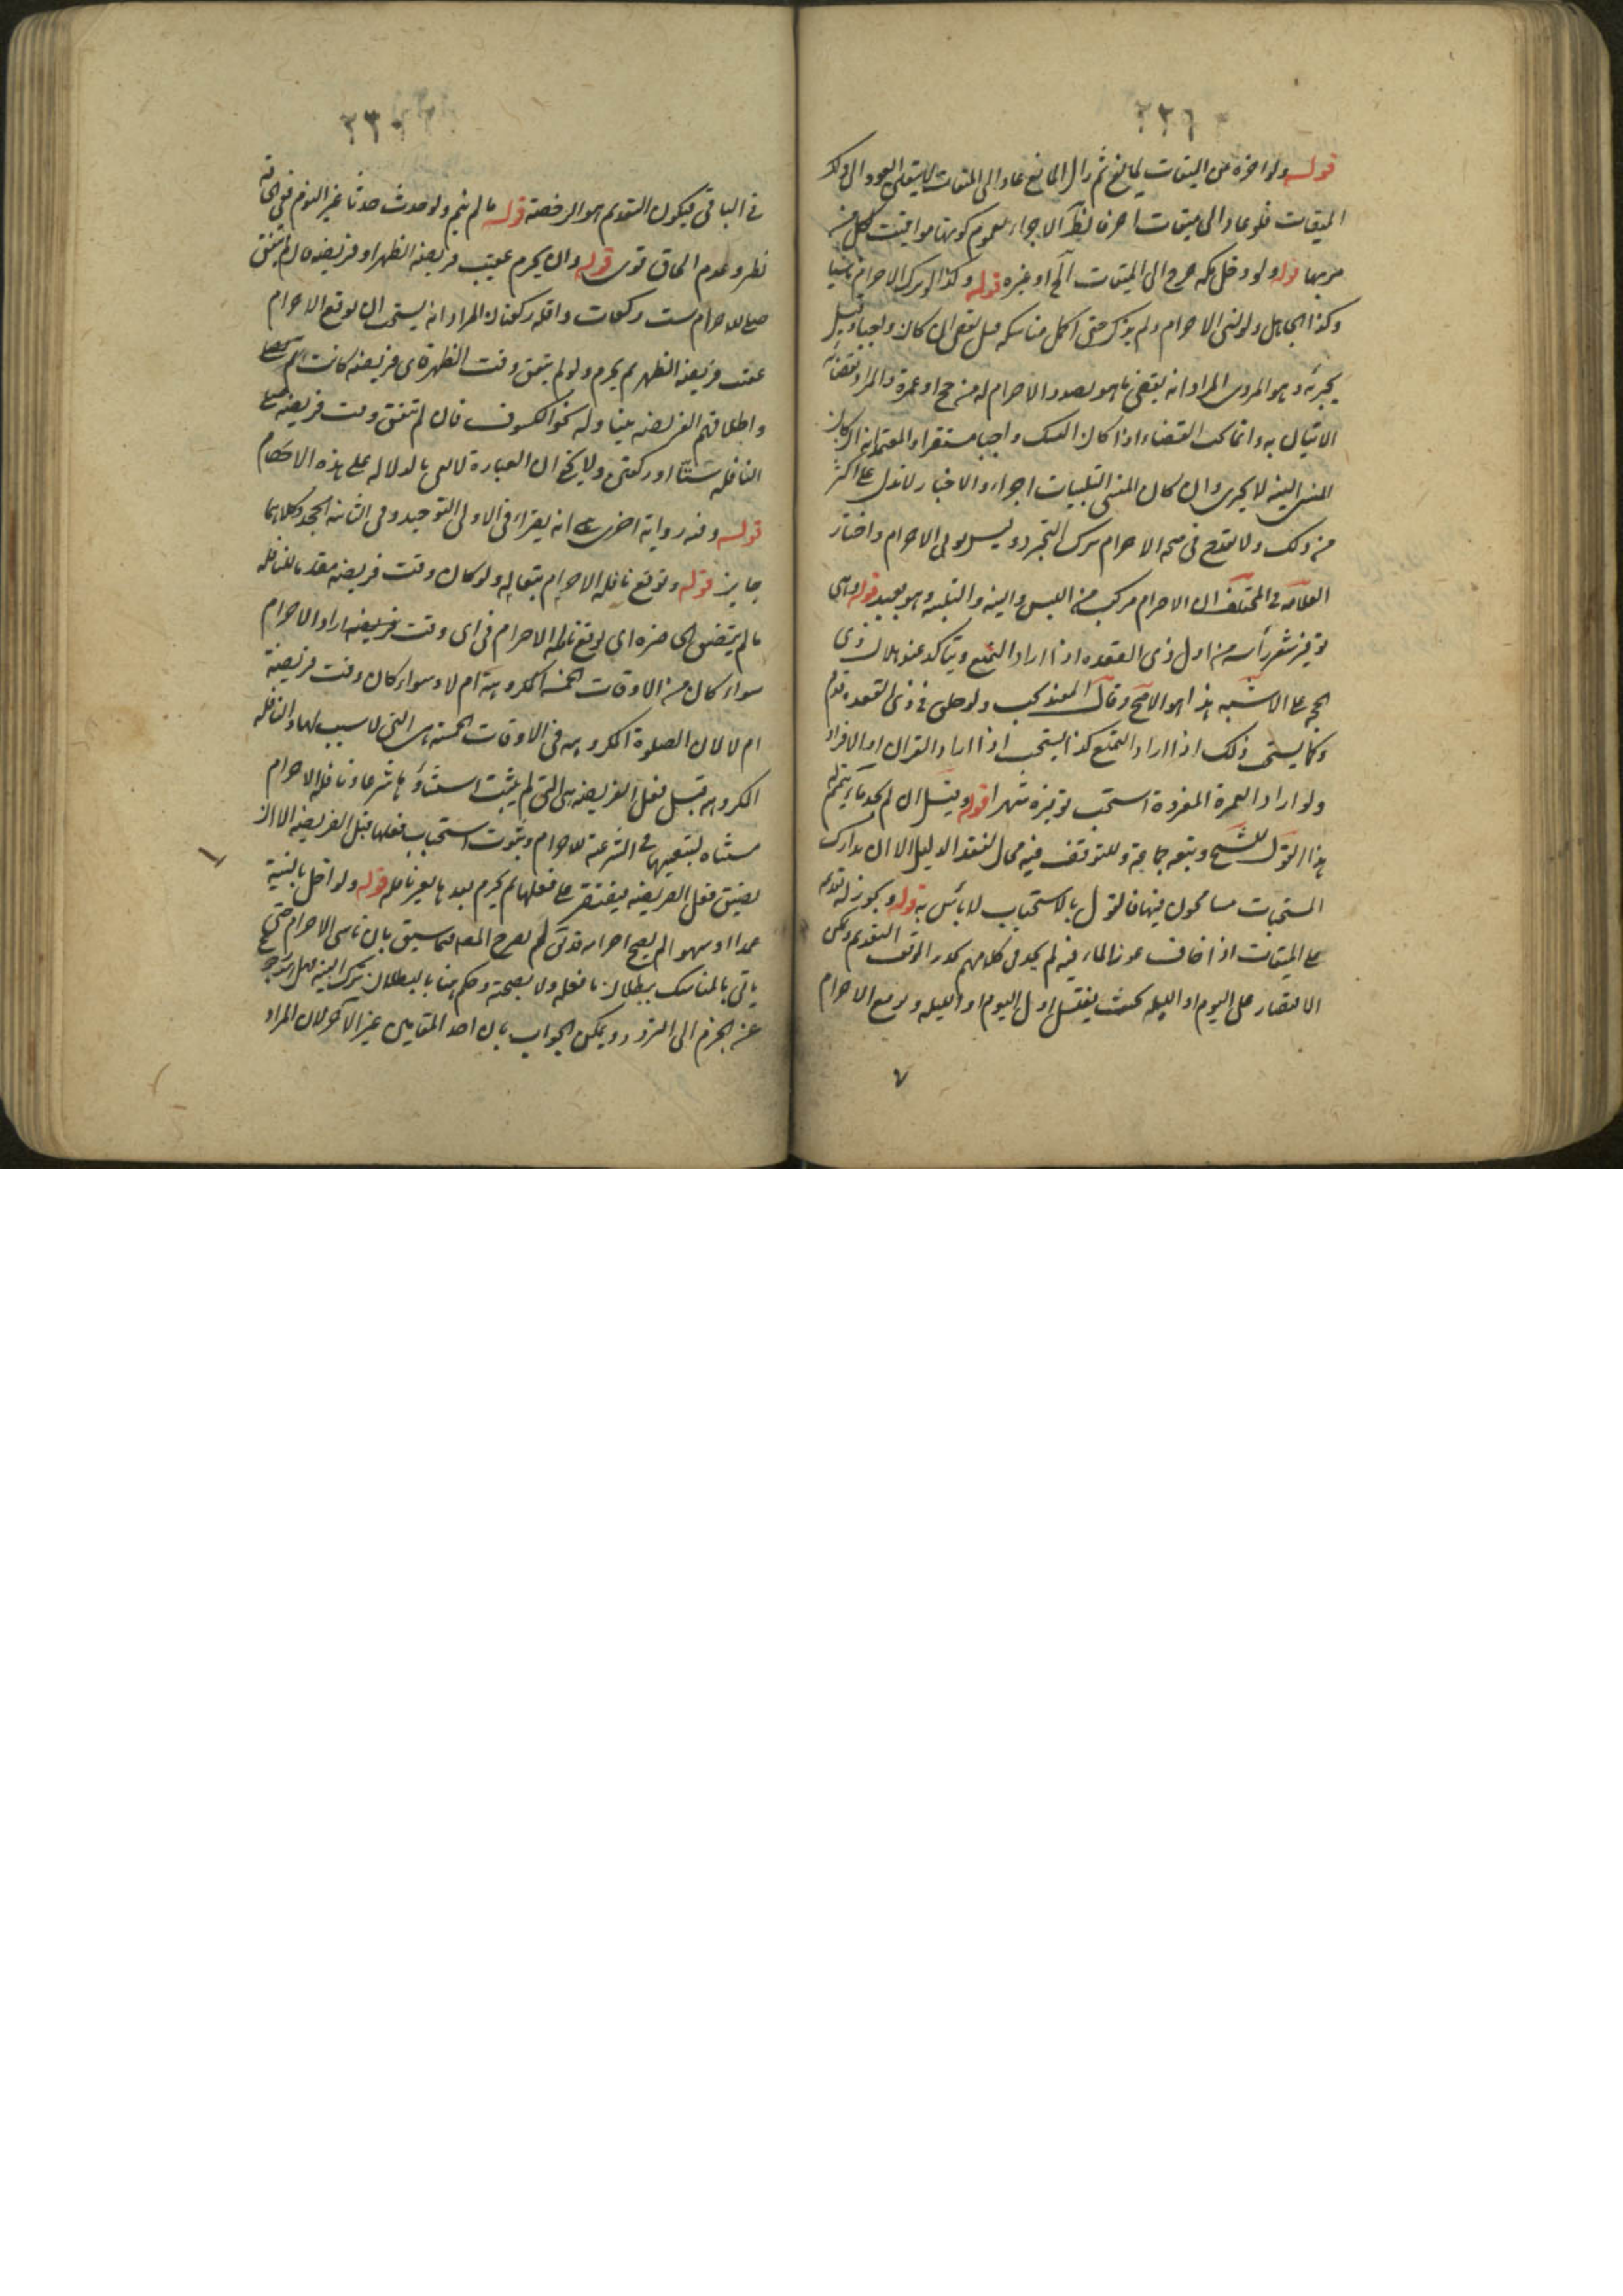 ٢٢٩
قوله ولو اخره عن الميقات لمانع ثم زال المانع عاد الى الميقات لا يتعين العود الى ذلك
الميقات فلو عاد الى ميقات اخر فالظ الاجزاء لعموم كونها مواقيت لكل من
مر بها قوله ولو دخل مكة خرج الى الميقات الخ او غيره قوله وكذا لو ترك الاحرام ناسيا
وكذا الجاهل ولو نسي الاحرام ولم يذكر حتى اكمل مناسكه قيل يقضي ان كان واجبا وقيل
يجزئه وهو المروي المراد انه يقضي ما هو بصدد الاحرام له من حج او عمرة والمراد بقضائه
الاتيان به وانما يجب القضاء اذا كان النسك واجبا مستقرا والمعتمد انه ان كان
المنسي النية لا يجزي وان كان المنسي التلبيات اجزاء والاخبار لا تدل على اكثر
من ذلك ولا يقدح في صحة الاحرام ترك التجرد وليس ثوبي الاحرام واختار
العلامة في المختلف ان الاحرام مركب من اللبس والنية والتلبية وهو بعيد قوله وهي
توفير شعر رأسه من اول ذي القعدة اذا اراد التمتع ويتأكد عند هلال ذي
الحجة على الاشبه هذا هو الاصح وقال المفيد يجب ولو حلق في ذي القعدة لزم
وكما يستحب ذلك اذا اراد التمتع كذا يستحب اذا اراد القران او الافراد
ولو اراد العمرة المفردة استحب توفيره شهرا قوله وقيل ان لم يجد ماء يتيمم له
هذا القول للشيخ وتبعه جماعة وللتوقف فيه مجال لفقد الدليل الا ان مدارك
المستحبات مسامحون فيها فالقول بالاستحباب لا بأس به قوله ويجوز له تقديمه
على الميقات اذا خاف عوز الماء فيه لم يجد في كلامهم تحديد لوقت التقديم ويمكن
الاقتصار على اليوم او الليلة بحيث يغتسل اول اليوم او الليلة ويوقع الاحرام
٧
٢٣٠
في الباقي فيكون التقديم هو الرخصة قوله ما لم ينم ولو حدث حدثا غير النوم ففي الحاقه
نظر وعدم الحاق قوي قوله وان يحرم عقيب فريضة الظهر او فريضة فان لم يتفق
صلى للاحرام ست ركعات واقله ركعتان المراد انه يستحب ان يوقع الاحرام
عقيب فريضة الظهر ثم يحرم ولو لم يتفق وقت الظهر فاي فريضة كانت
واطلاقهم الفريضة يتناول نحو الكسوف فان لم يتفق وقت فريضة صلى
النافلة ستا او ركعتين ولا يخفى ان العبارة لا تفي بالدلالة على هذه الاحكام
قوله وفيه رواية اخرى هي انه يقراء في الاولى التوحيد وفي الثانية الجحد وكلاهما
جايز قوله ويوقع نافلة الاحرام تبعا له ولو كان وقت فريضة مقدما للنافلة
ما لم يتضيق الحاضرة اي يوقع نافلة الاحرام في اي وقت فريضة اراد الاحرام
سواء كان من الاوقات الخمسة المكروهة ام لا وسواء كان وقت فريضة
ام لا لان الصلوة المكروهة في الاوقات الخمسة هي التي لا سبب لها والنافلة
المكروهة قبل فعل الفريضة هي التي لم يثبت استثناؤها شرعا ونافلة الاحرام
مستثناة لتبعيتها في الشرعية للاحرام وثبوت استحباب فعلها قبل الفريضة الا ان
يضيق فعل الفريضة فيقتصر على فعلها ثم يحرم بعدها بغير نافلة قوله ولو اخل بالنية
عمدا او سهوا لم يصح احرامه قد لم يصرح المصـ فيما سبق بان ناسي الاحرام حتى
ياتي بالمناسك ببطلان ما فعله ولا بصحته وحكم هنا بالبطلان بترك النية
عن الجزم الى التردد ويمكن الجواب بان احد المقامين غير الآخر لان المراد